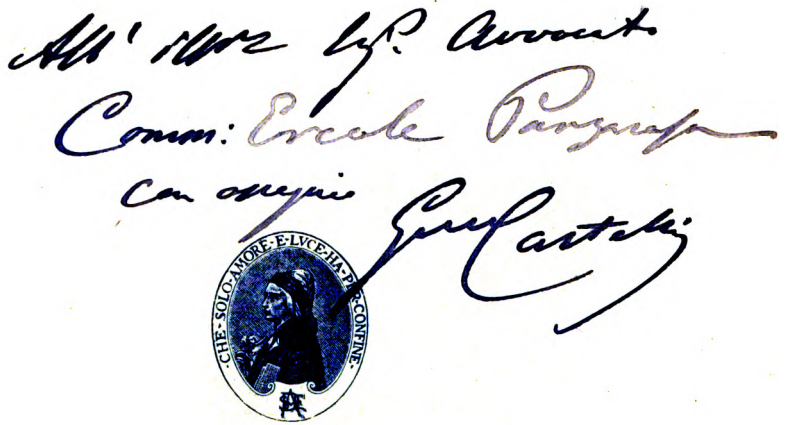 All' Ill.mo Sig. Avvocato
Comm: Ercole
con ossequio
Castelli
·CHE·SOLO·AMORE·E·LVCE·HA·PER·CONFINE·